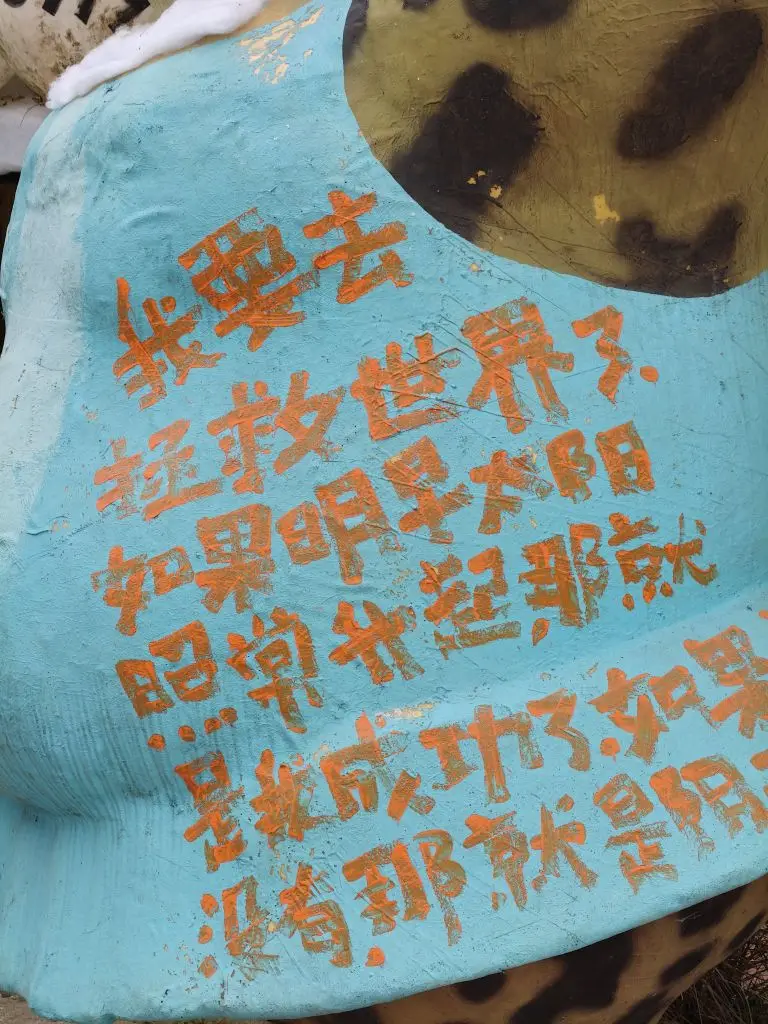 我要去
拯救世界了.
如果明早太阳
照常升起,那就
是我成功了.如果
没有,那就是阴